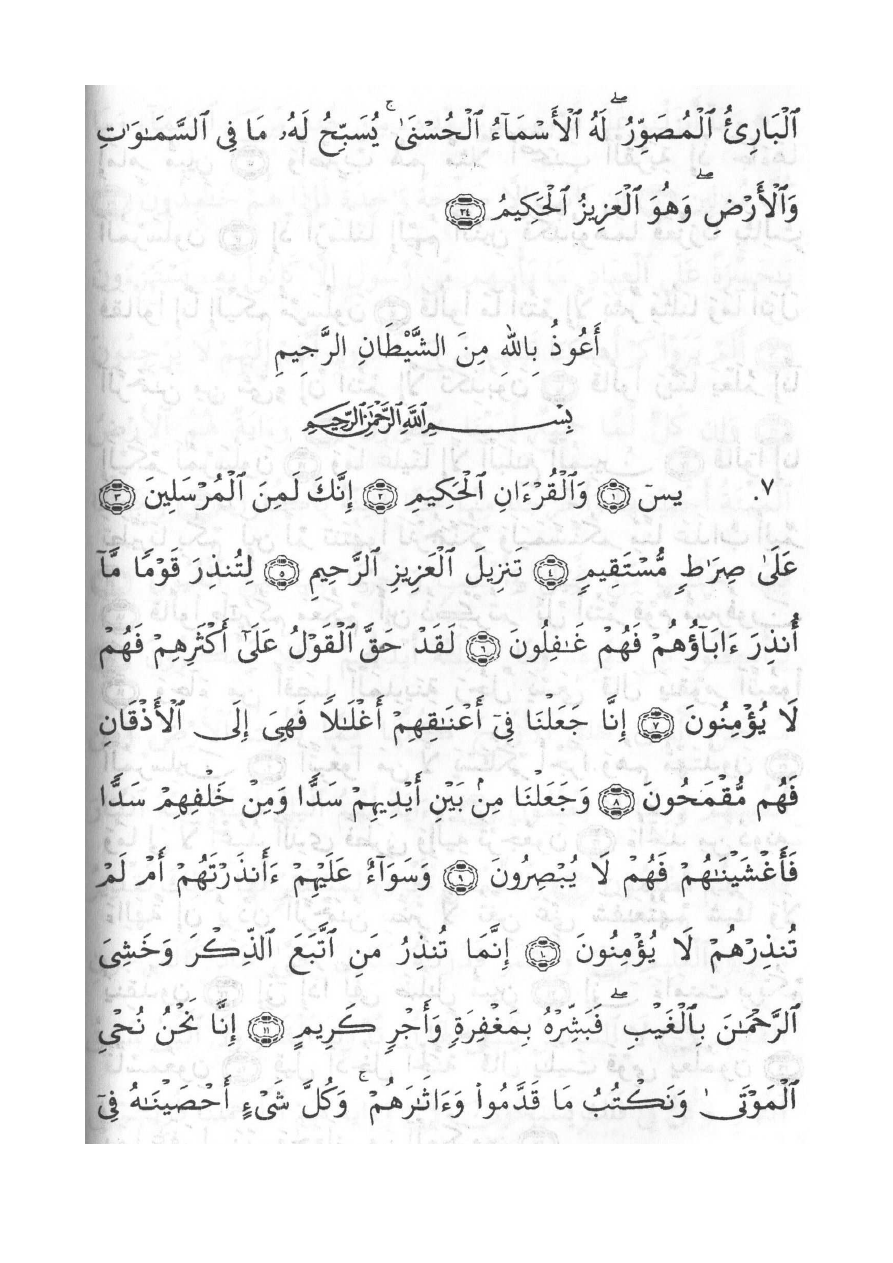 ٱلْبَارِئُ ٱلْمُصَوِّرُ ۖ لَهُ ٱلْأَسْمَآءُ ٱلْحُسْنَىٰ ۚ يُسَبِّحُ لَهُۥ مَا فِى ٱلسَّمَـٰوَٰتِ
وَٱلْأَرْضِ ۖ وَهُوَ ٱلْعَزِيزُ ٱلْحَكِيمُ ٢٤
أَعُوذُ بِاللهِ مِنَ الشَّيْطَانِ الرَّجِيمِ
بِسْمِ ٱللَّهِ ٱلرَّحْمَـٰنِ ٱلرَّحِيمِ
٧. يسٓ ١ وَٱلْقُرْءَانِ ٱلْحَكِيمِ ٢ إِنَّكَ لَمِنَ ٱلْمُرْسَلِينَ ٣
عَلَىٰ صِرَٰطٍ مُّسْتَقِيمٍ ٤ تَنزِيلَ ٱلْعَزِيزِ ٱلرَّحِيمِ ٥ لِتُنذِرَ قَوْمًا مَّآ
أُنذِرَ ءَابَآؤُهُمْ فَهُمْ غَـٰفِلُونَ ٦ لَقَدْ حَقَّ ٱلْقَوْلُ عَلَىٰٓ أَكْثَرِهِمْ فَهُمْ
لَا يُؤْمِنُونَ ٧ إِنَّا جَعَلْنَا فِىٓ أَعْنَـٰقِهِمْ أَغْلَـٰلًا فَهِىَ إِلَى ٱلْأَذْقَانِ
فَهُم مُّقْمَحُونَ ٨ وَجَعَلْنَا مِنۢ بَيْنِ أَيْدِيهِمْ سَدًّا وَمِنْ خَلْفِهِمْ سَدًّا
فَأَغْشَيْنَـٰهُمْ فَهُمْ لَا يُبْصِرُونَ ٩ وَسَوَآءٌ عَلَيْهِمْ ءَأَنذَرْتَهُمْ أَمْ لَمْ
تُنذِرْهُمْ لَا يُؤْمِنُونَ ١٠ إِنَّمَا تُنذِرُ مَنِ ٱتَّبَعَ ٱلذِّكْرَ وَخَشِىَ
ٱلرَّحْمَـٰنَ بِٱلْغَيْبِ ۖ فَبَشِّرْهُ بِمَغْفِرَةٍ وَأَجْرٍ كَرِيمٍ ١١ إِنَّا نَحْنُ نُحْىِ
ٱلْمَوْتَىٰ وَنَكْتُبُ مَا قَدَّمُوا۟ وَءَاثَـٰرَهُمْ ۚ وَكُلَّ شَىْءٍ أَحْصَيْنَـٰهُ فِىٓ